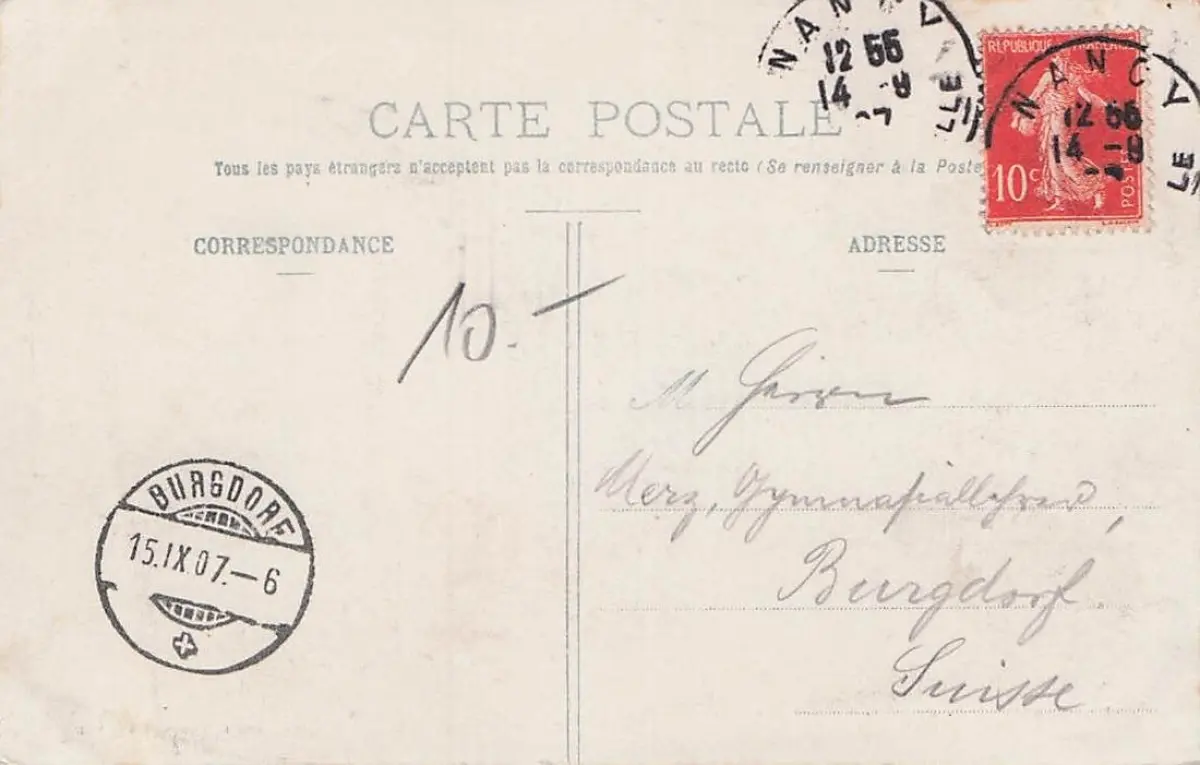 NANCY
12 55
14 -9
07
LLE
REPUBLIQUE FRANCAISE
10 c.
POSTES
NANCY
12 55
14 -9
LE
CARTE POSTALE
Tous les pays étrangers n'acceptent pas la correspondance au recto (Se renseigner à la Poste
CORRESPONDANCE
ADRESSE
10.-
M Herrn
Merz, Gymnasiallehrer,
Burgdorf
Suisse
BURGDORF
15.IX.07.-6